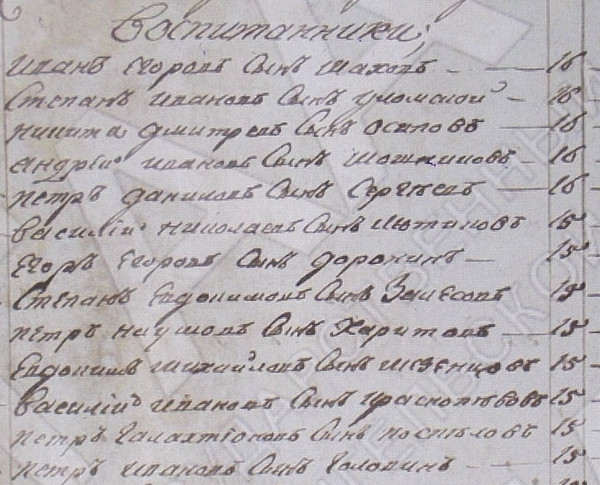 Воспитанники;
Иванъ Егоровъ Сынъ Шаховъ — 16
Степанъ Ивановъ Сынъ Уломской — 16
Никита Дмитревъ Сынъ Осиповъ — 16
Андрій Ивановъ Сынъ — 16
Петръ Даниловъ Сынъ Сергѣевъ — 16
Василій Николаевъ Сынъ Лютиковъ 15
Егоръ Егоровъ Сынъ Доронинъ — 15
Степанъ Евдокимовъ Сынъ 15
Петръ Наумовъ Сынъ Харитовъ — 15
Евдокимъ Михайловъ Сынъ Мезенцовъ 15
Василій Ивановъ Сынъ 15
Петръ Галахтіоновъ Сынъ Поспѣловъ 15
Петръ Ивановъ Сынъ Головинъ — 15